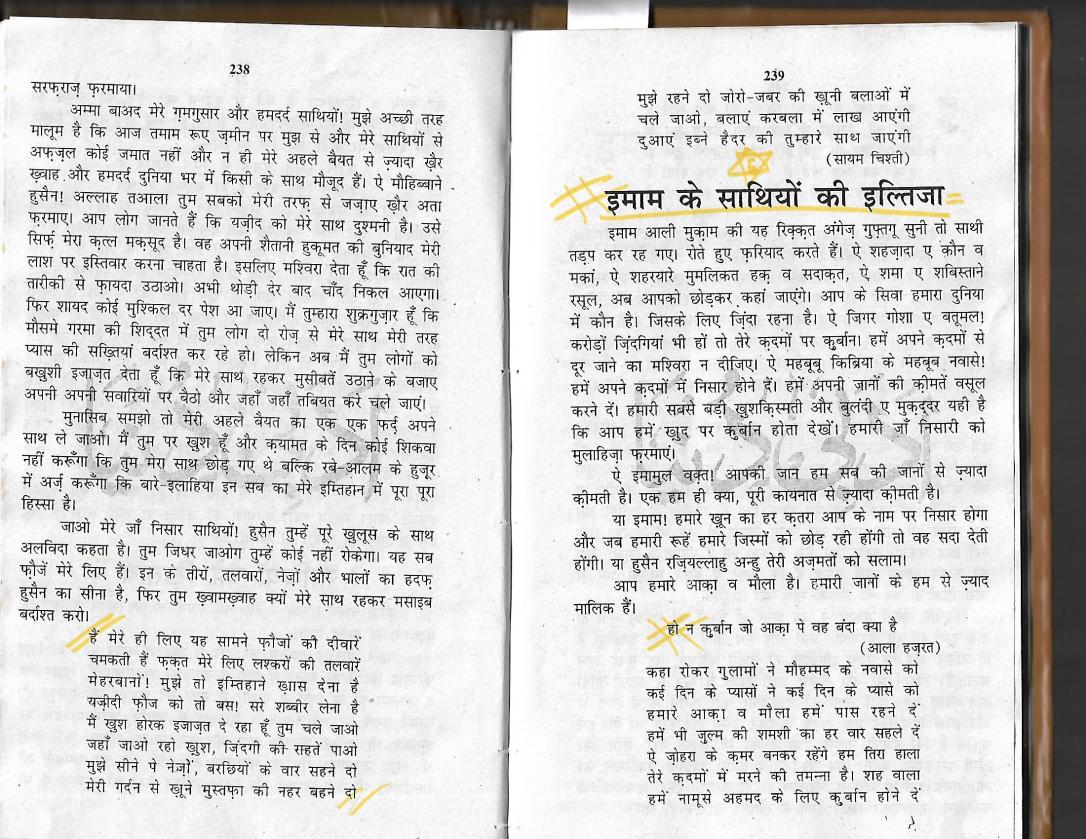 238
सरफ़राज़ फ़रमाया।
अम्मा बाअद मेरे ग़मगुसार और हमदर्द साथियों! मुझे अच्छी तरह
मालूम है कि आज तमाम रूए ज़मीन पर मुझ से और मेरे साथियों से
अफ़ज़ल कोई जमात नहीं और न ही मेरे अहले बैयत से ज़्यादा ख़ैर
ख़्वाह और हमदर्द दुनिया भर में किसी के साथ मौजूद हैं। ऐ मौहिब्बाने
हुसैन! अल्लाह तआला तुम सबको मेरी तरफ़ से जज़ाए ख़ैर अता
फ़रमाए। आप लोग जानते हैं कि यज़ीद को मेरे साथ दुश्मनी है। उसे
सिर्फ़ मेरा क़त्ल मक़सूद है। वह अपनी शैतानी हुकूमत की बुनियाद मेरी
लाश पर इस्तिवार करना चाहता है। इसलिए मश्विरा देता हूँ कि रात की
तारीकी से फ़ायदा उठाओ। अभी थोड़ी देर बाद चाँद निकल आएगा।
फिर शायद कोई मुश्किल दर पेश आ जाए। मैं तुम्हारा शुक्रगुज़ार हूँ कि
मौसमे गरमा की शिद्दत में तुम लोग दो रोज़ से मेरे साथ मेरी तरह
प्यास की सख़्तियां बर्दाश्त कर रहे हो। लेकिन अब मैं तुम लोगों को
बखुशी इजाज़त देता हूँ कि मेरे साथ रहकर मुसीबतें उठाने के बजाए
अपनी अपनी सवारियों पर बैठो और जहाँ जहाँ तबियत करे चले जाएं।
मुनासिब समझो तो मेरी अहले बैयत का एक एक फ़र्द अपने
साथ ले जाओ। मैं तुम पर खुश हूँ और क़यामत के दिन कोई शिकवा
नहीं करूँगा कि तुम मेरा साथ छोड़ गए थे बल्कि रबे-आलम के हुजूर
में अर्ज़ करूँगा कि बारे-इलाहिया इन सब का मेरे इम्तिहान में पूरा पूरा
हिस्सा है।
जाओ मेरे जाँ निसार साथियों! हुसैन तुम्हें पूरे खुलूस के साथ
अलविदा कहता है। तुम जिधर जाओग तुम्हें कोई नहीं रोकेगा। यह सब
फ़ौजें मेरे लिए हैं। इन के तीरों, तलवारों, नेज़ों और भालों का हदफ़
हुसैन का सीना है, फिर तुम ख़्वामख़्वाह क्यों मेरे साथ रहकर मसाइब
बर्दाश्त करो।
हैं मेरे ही लिए यह सामने फ़ौजों की दीवारें
चमकती हैं फ़क़त मेरे लिए लश्करों की तलवारें
मेहरबानों! मुझे तो इम्तिहाने ख़ास देना है
यज़ीदी फ़ौज को तो बस! सरे शब्बीर लेना है
मैं खुश होरक इजाज़त दे रहा हूँ तुम चले जाओ
जहाँ जाओ रहो खुश, ज़िंदगी की सहतें पाओ
मुझे सीने पे नेज़ों, बरछियों के वार सहने दो
मेरी गर्दन से खूने मुस्तफ़ा की नहर बहने दो
239
मुझे रहने दो जोरो-जबर की ख़ूनी बलाओं में
चले जाओ, बलाएं करबला में लाख आएंगी
दुआएं इब्ने हैदर की तुम्हारे साथ जाएंगी
(सायम चिश्ती)
इमाम के साथियों की इल्तिजा
इमाम आली मुक़ाम की यह रिक़्क़त अंगेज़ गुफ़्तगू सुनी तो साथी
तड़प कर रह गए। रोते हुए फ़रियाद करते हैं। ऐ शहज़ादा ए कौन व
मकां, ऐ शहरयारे मुमलिकत हक़ व सदाक़त, ऐ शमा ए शबिस्ताने
रसूल, अब आपको छोड़कर कहां जाएंगे। आप के सिवा हमारा दुनिया
में कौन है। जिसके लिए ज़िंदा रहना है। ऐ जिगर गोशा ए बतूमल!
करोड़ों ज़िंदगियां भी हों तो तेरे क़दमों पर कुर्बान। हमें अपने क़दमों से
दूर जाने का मश्विरा न दीजिए। ऐ महबूब किब्रिया के महबूब नवासे!
हमें अपने क़दमों में निसार होने दें। हमें अपनी ज़ानों की क़ीमतें वसूल
करने दें। हमारी सबसे बड़ी खुशक़िस्मती और बुलंदी ए मुक़द्दर यही है
कि आप हमें खुद पर क़ुर्बान होता देखें। हमारी जाँ निसारी को
मुलाहिज़ा फ़रमाएं।
ऐ इमामुल वक़्त! आपकी जान हम सब की जानों से ज़्यादा
क़ीमती है। एक हम ही क्या, पूरी कायनात से ज़्यादा क़ीमती है।
या इमाम! हमारे ख़ून का हर क़तरा आप के नाम पर निसार होगा
और जब हमारी रूहें हमारे जिस्मों को छोड़ रही होंगी तो वह सदा देती
होंगी। या हुसैन रज़ियल्लाहु अन्हु तेरी अज़मतों को सलाम।
आप हमारे आक़ा व मौला है। हमारी जानों के हम से ज़्याद
मालिक हैं।
हो न कुर्बान जो आक़ा पे वह बंदा क्या है
(आला हज़रत)
कहा रोकर गुलामों ने मौहम्मद के नवासे को
कई दिन के प्यासों ने कई दिन के प्यासे को
हमारे आक़ा व मौला हमें पास रहने दें
हमें भी जुल्म की शमशी का हर वार सहले दें
ऐ ज़ोहरा के क़मर बनकर रहेंगे हम तिरा हाला
तेरे क़दमों में मरने की तमन्ना है। शह वाला
हमें नामूसे अहमद के लिए कुर्बान होने दें